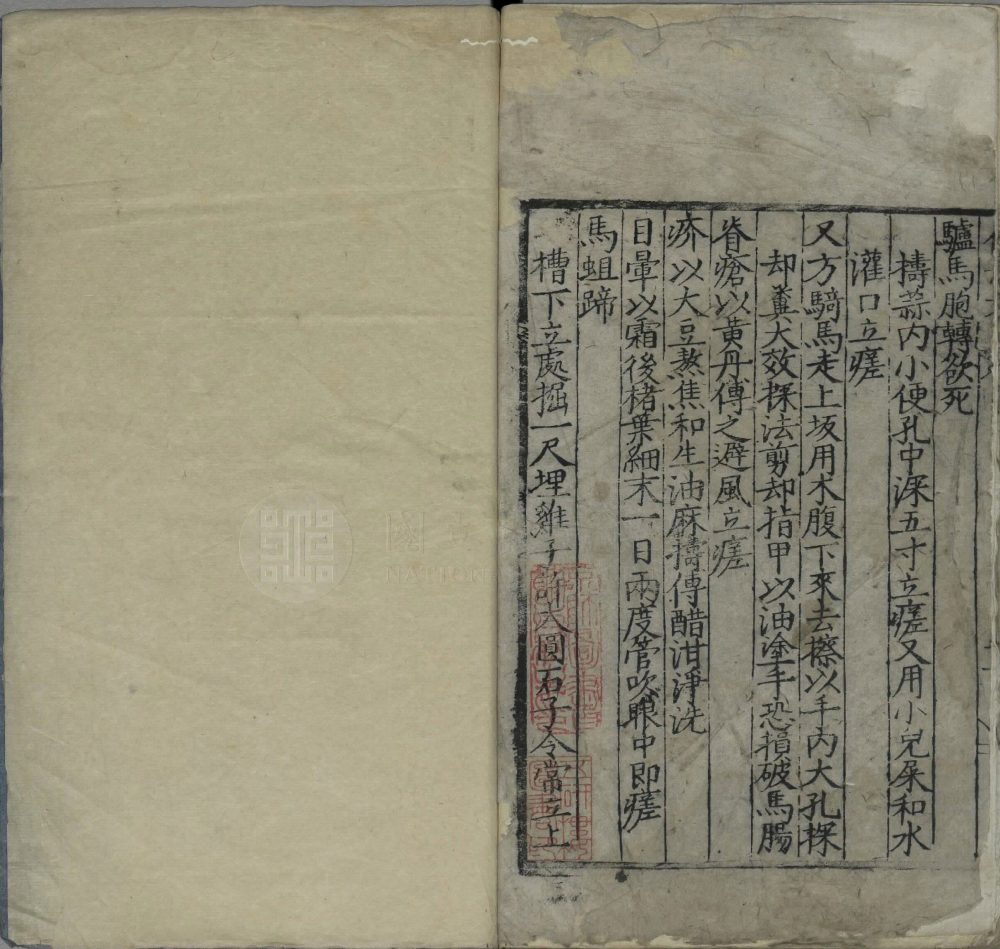 驢馬胞轉欲死
擣蒜内小便孔中深五寸立瘥又用小兒屎和水
灌口立瘥
又方騎馬走上坂用木腹下來去擦以手内大孔探
却糞大效探法剪却指甲以油塗手恐損破馬腸
脊瘡以黄丹傅之避風立瘥
疥以大豆熬焦和生油麻擣傅醋泔淨洗
目暈以霜後楮葉細末一日兩度管吹眼中即瘥
馬蛆蹄
槽下立處掘一尺埋雞子許大圓石子令常立上
國
NATION